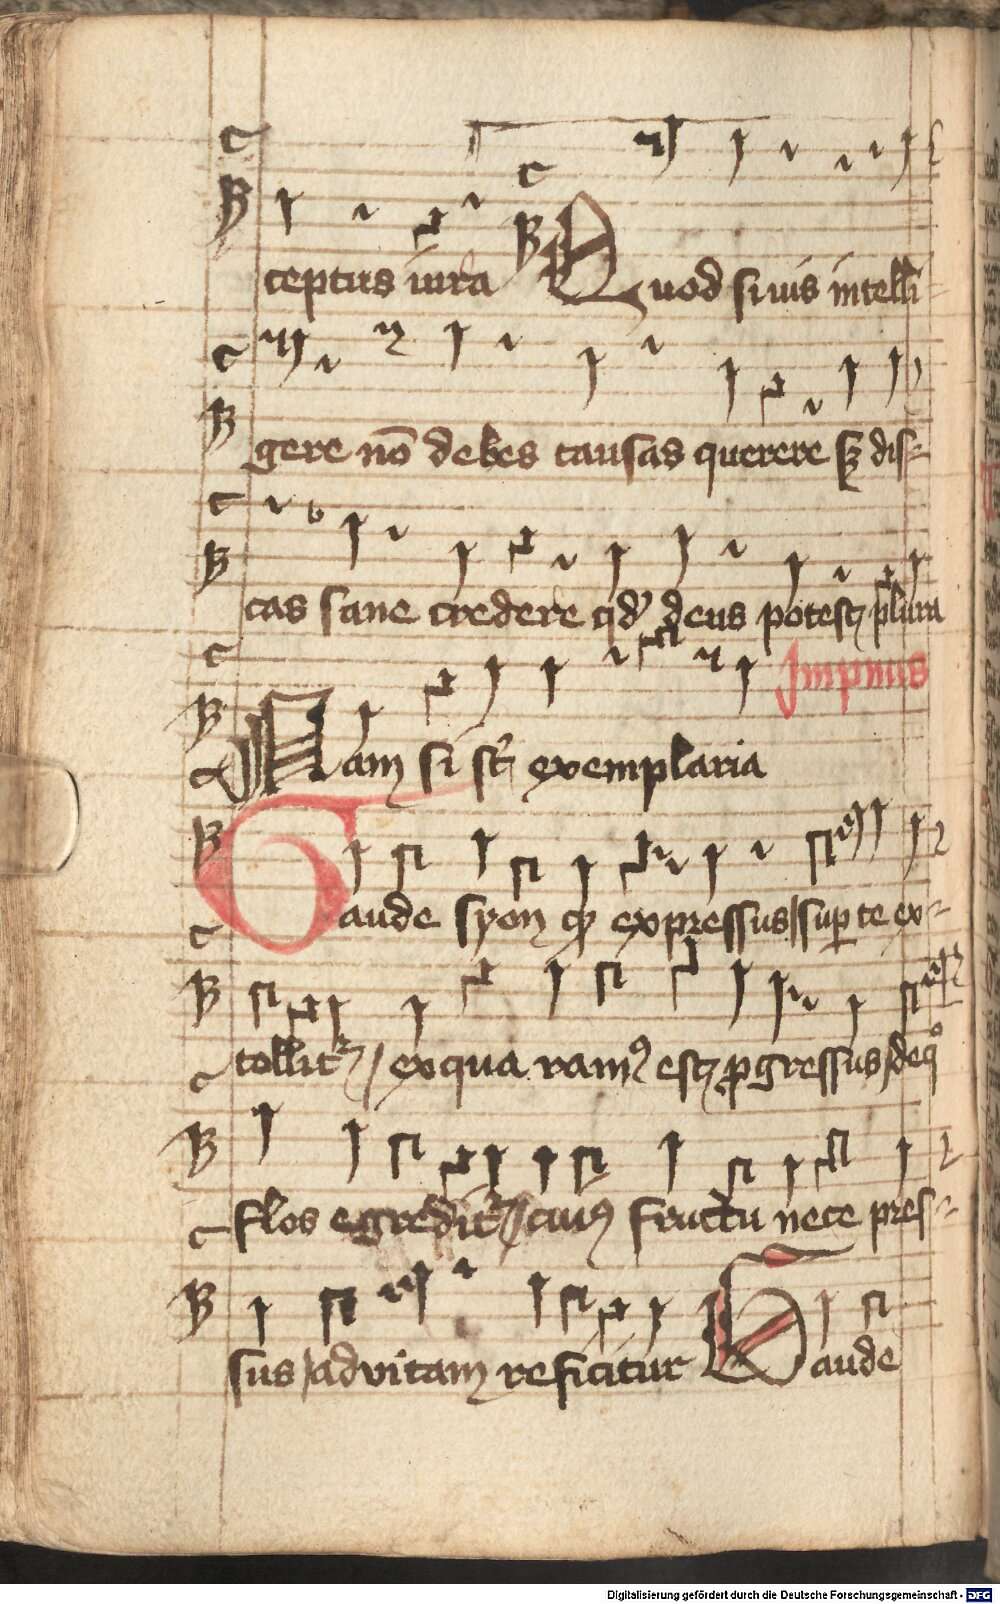 ceptus iura Quod si vis intelli
gere nō debes causas querere sꝫ dis-
cas sane credere qd' deus potest plura
Impnus
Nam si st' exemplaria
Gaude syon qꝫ expressus / sup te ex-
tollitr / ex qua ram9 est ꝓgressus / de q°
flos egreditr / cui9 fructu nece pres-
sus / ad vitam reficitur Gaude
Digitalisierung gefördert durch die Deutsche Forschungsgemeinschaft - DFG